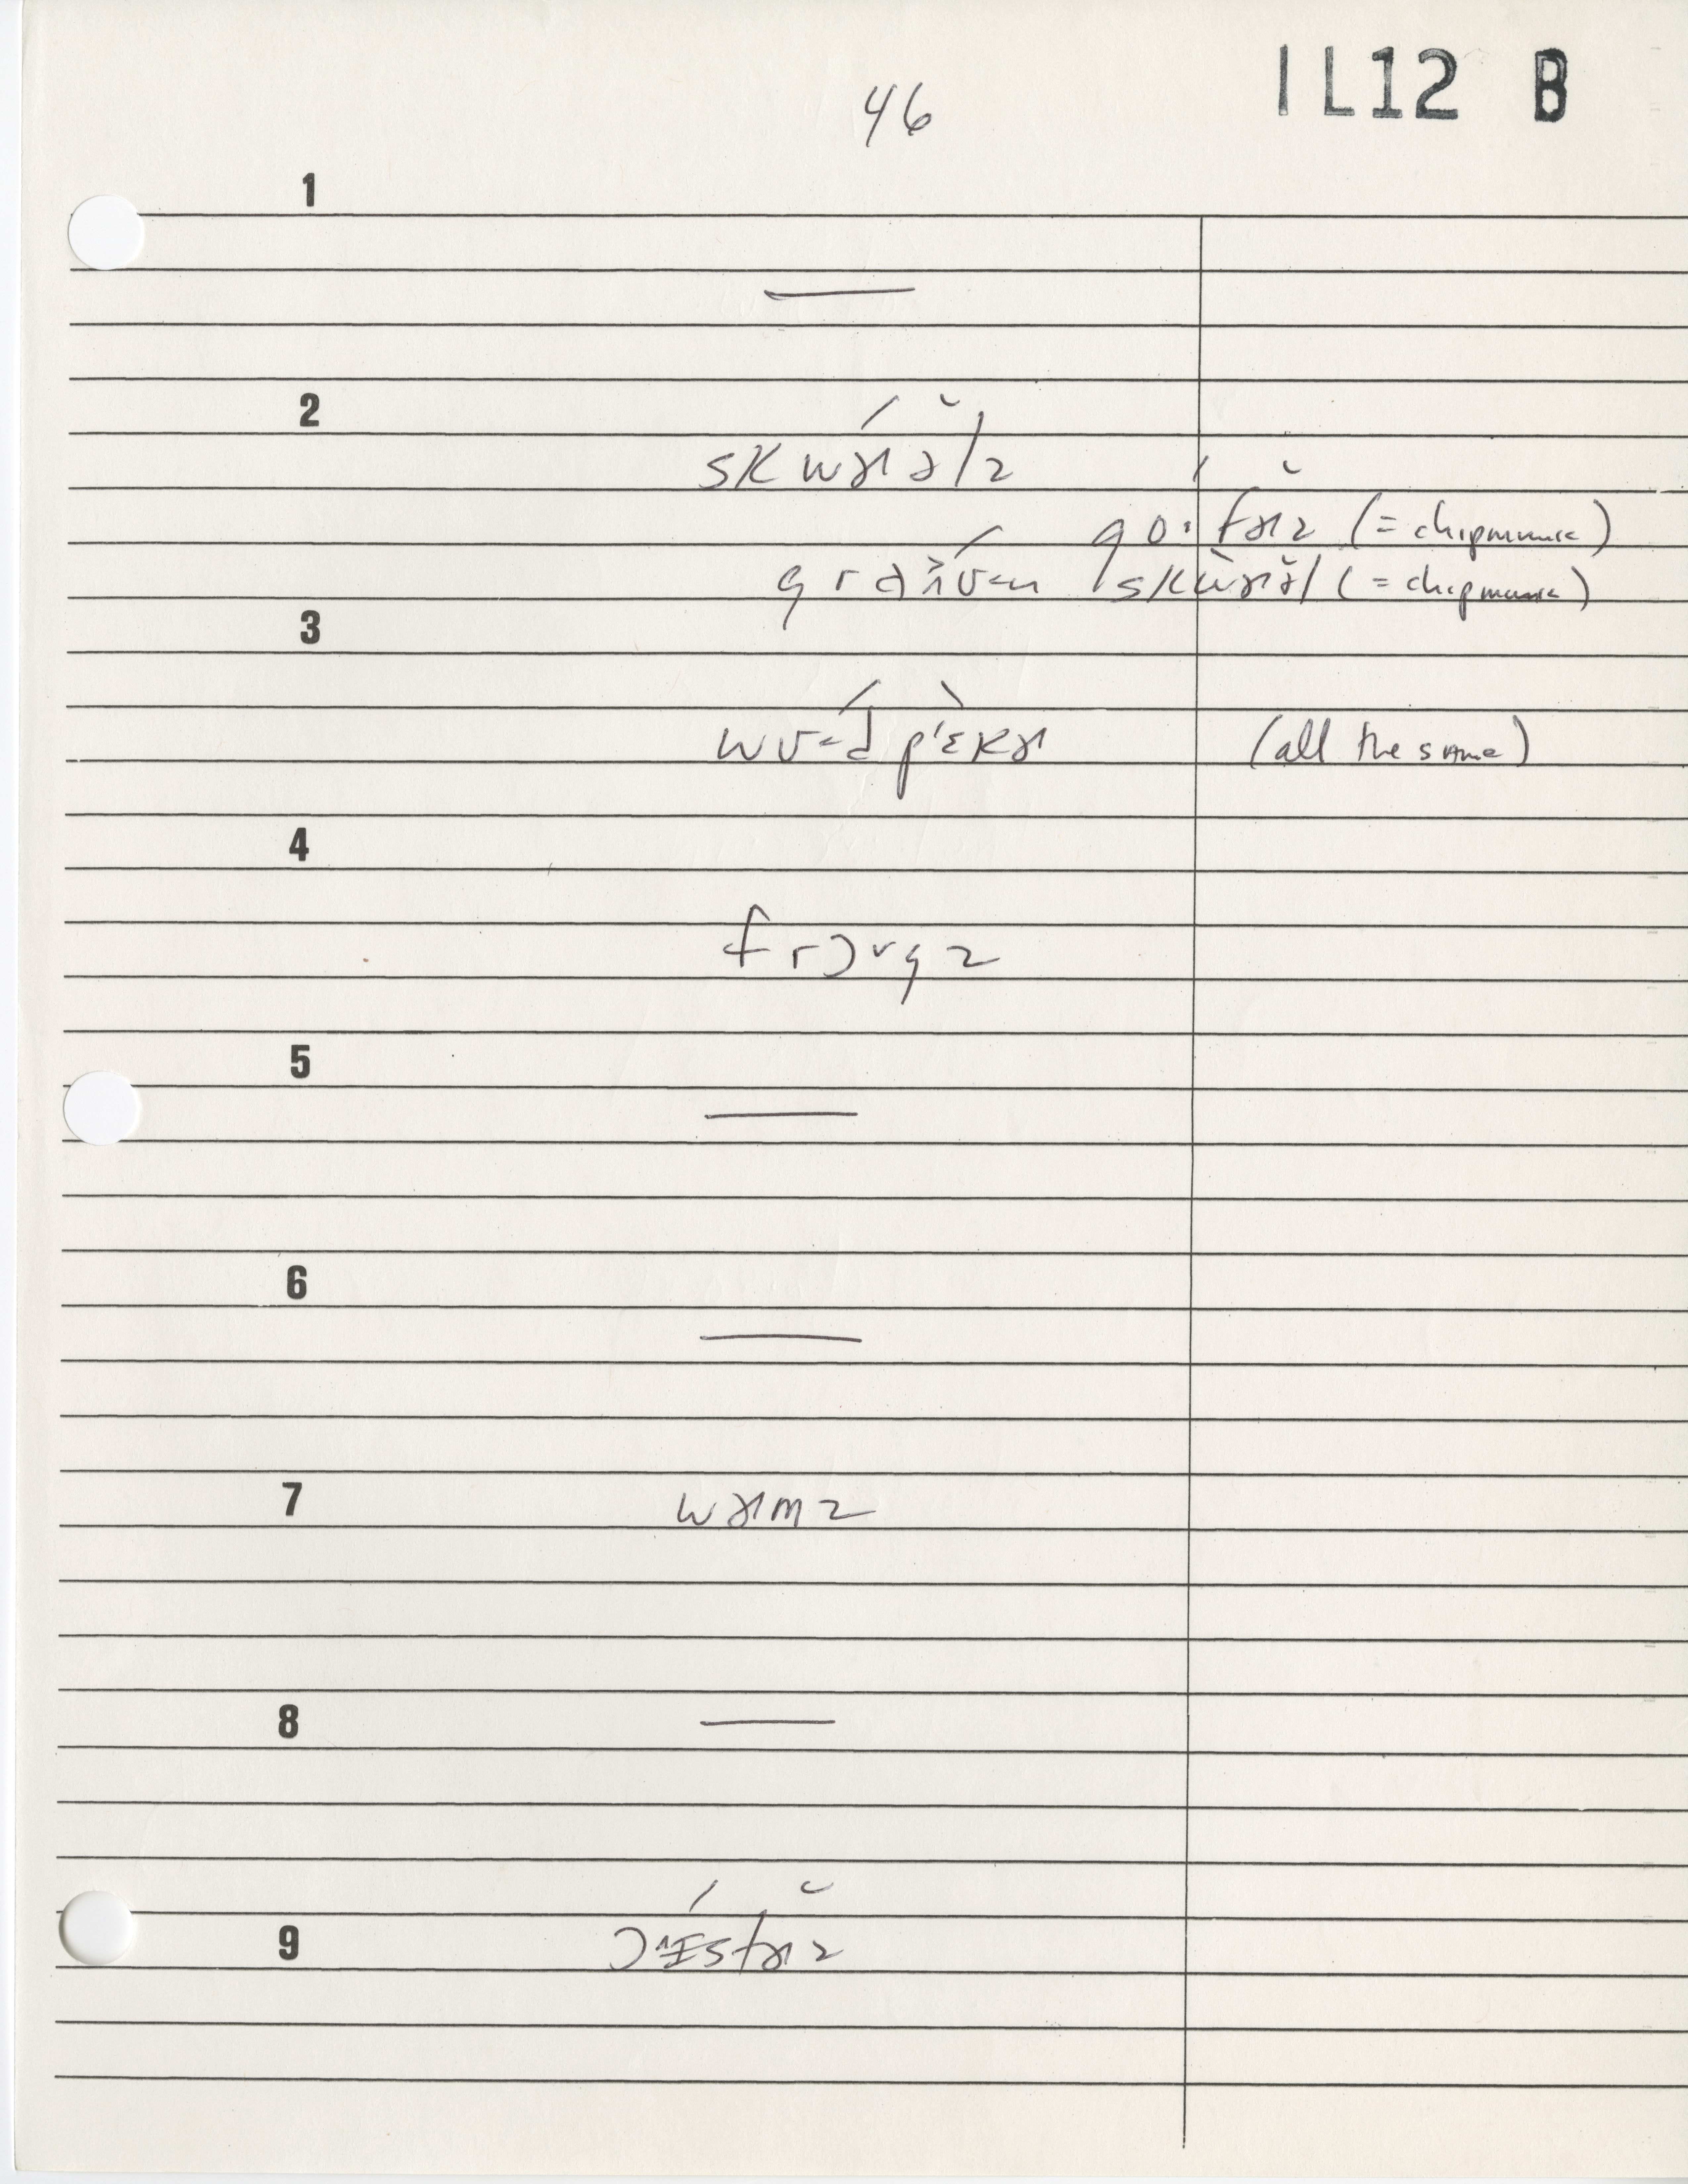 46
IL12 B
1
2
skwɝəlz
goːfɝz (= chipmunk)
graʊn skwɝəl (= chipmunk)
3
wʊd p'ɛkɝ (all the same)
4
frɔgz
5
6
7
wɝmz
8
9
ɔɪstɝz